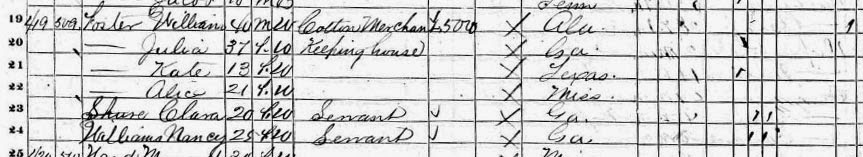 Jacob 10 m Tenn
19 419 509 Foster William 40 m W Cotton Merchan 2500 X Ala 1
20 — Julia 37 f. W Keeping house X Ga
21 — Kate 13 f. W X Texas.
22 — Alice 21 f. W X Miss.
23 Clara 20 f. W Servant X Ga 11
24 Williams Nancy 25 f. W Servant X Ga 11
25